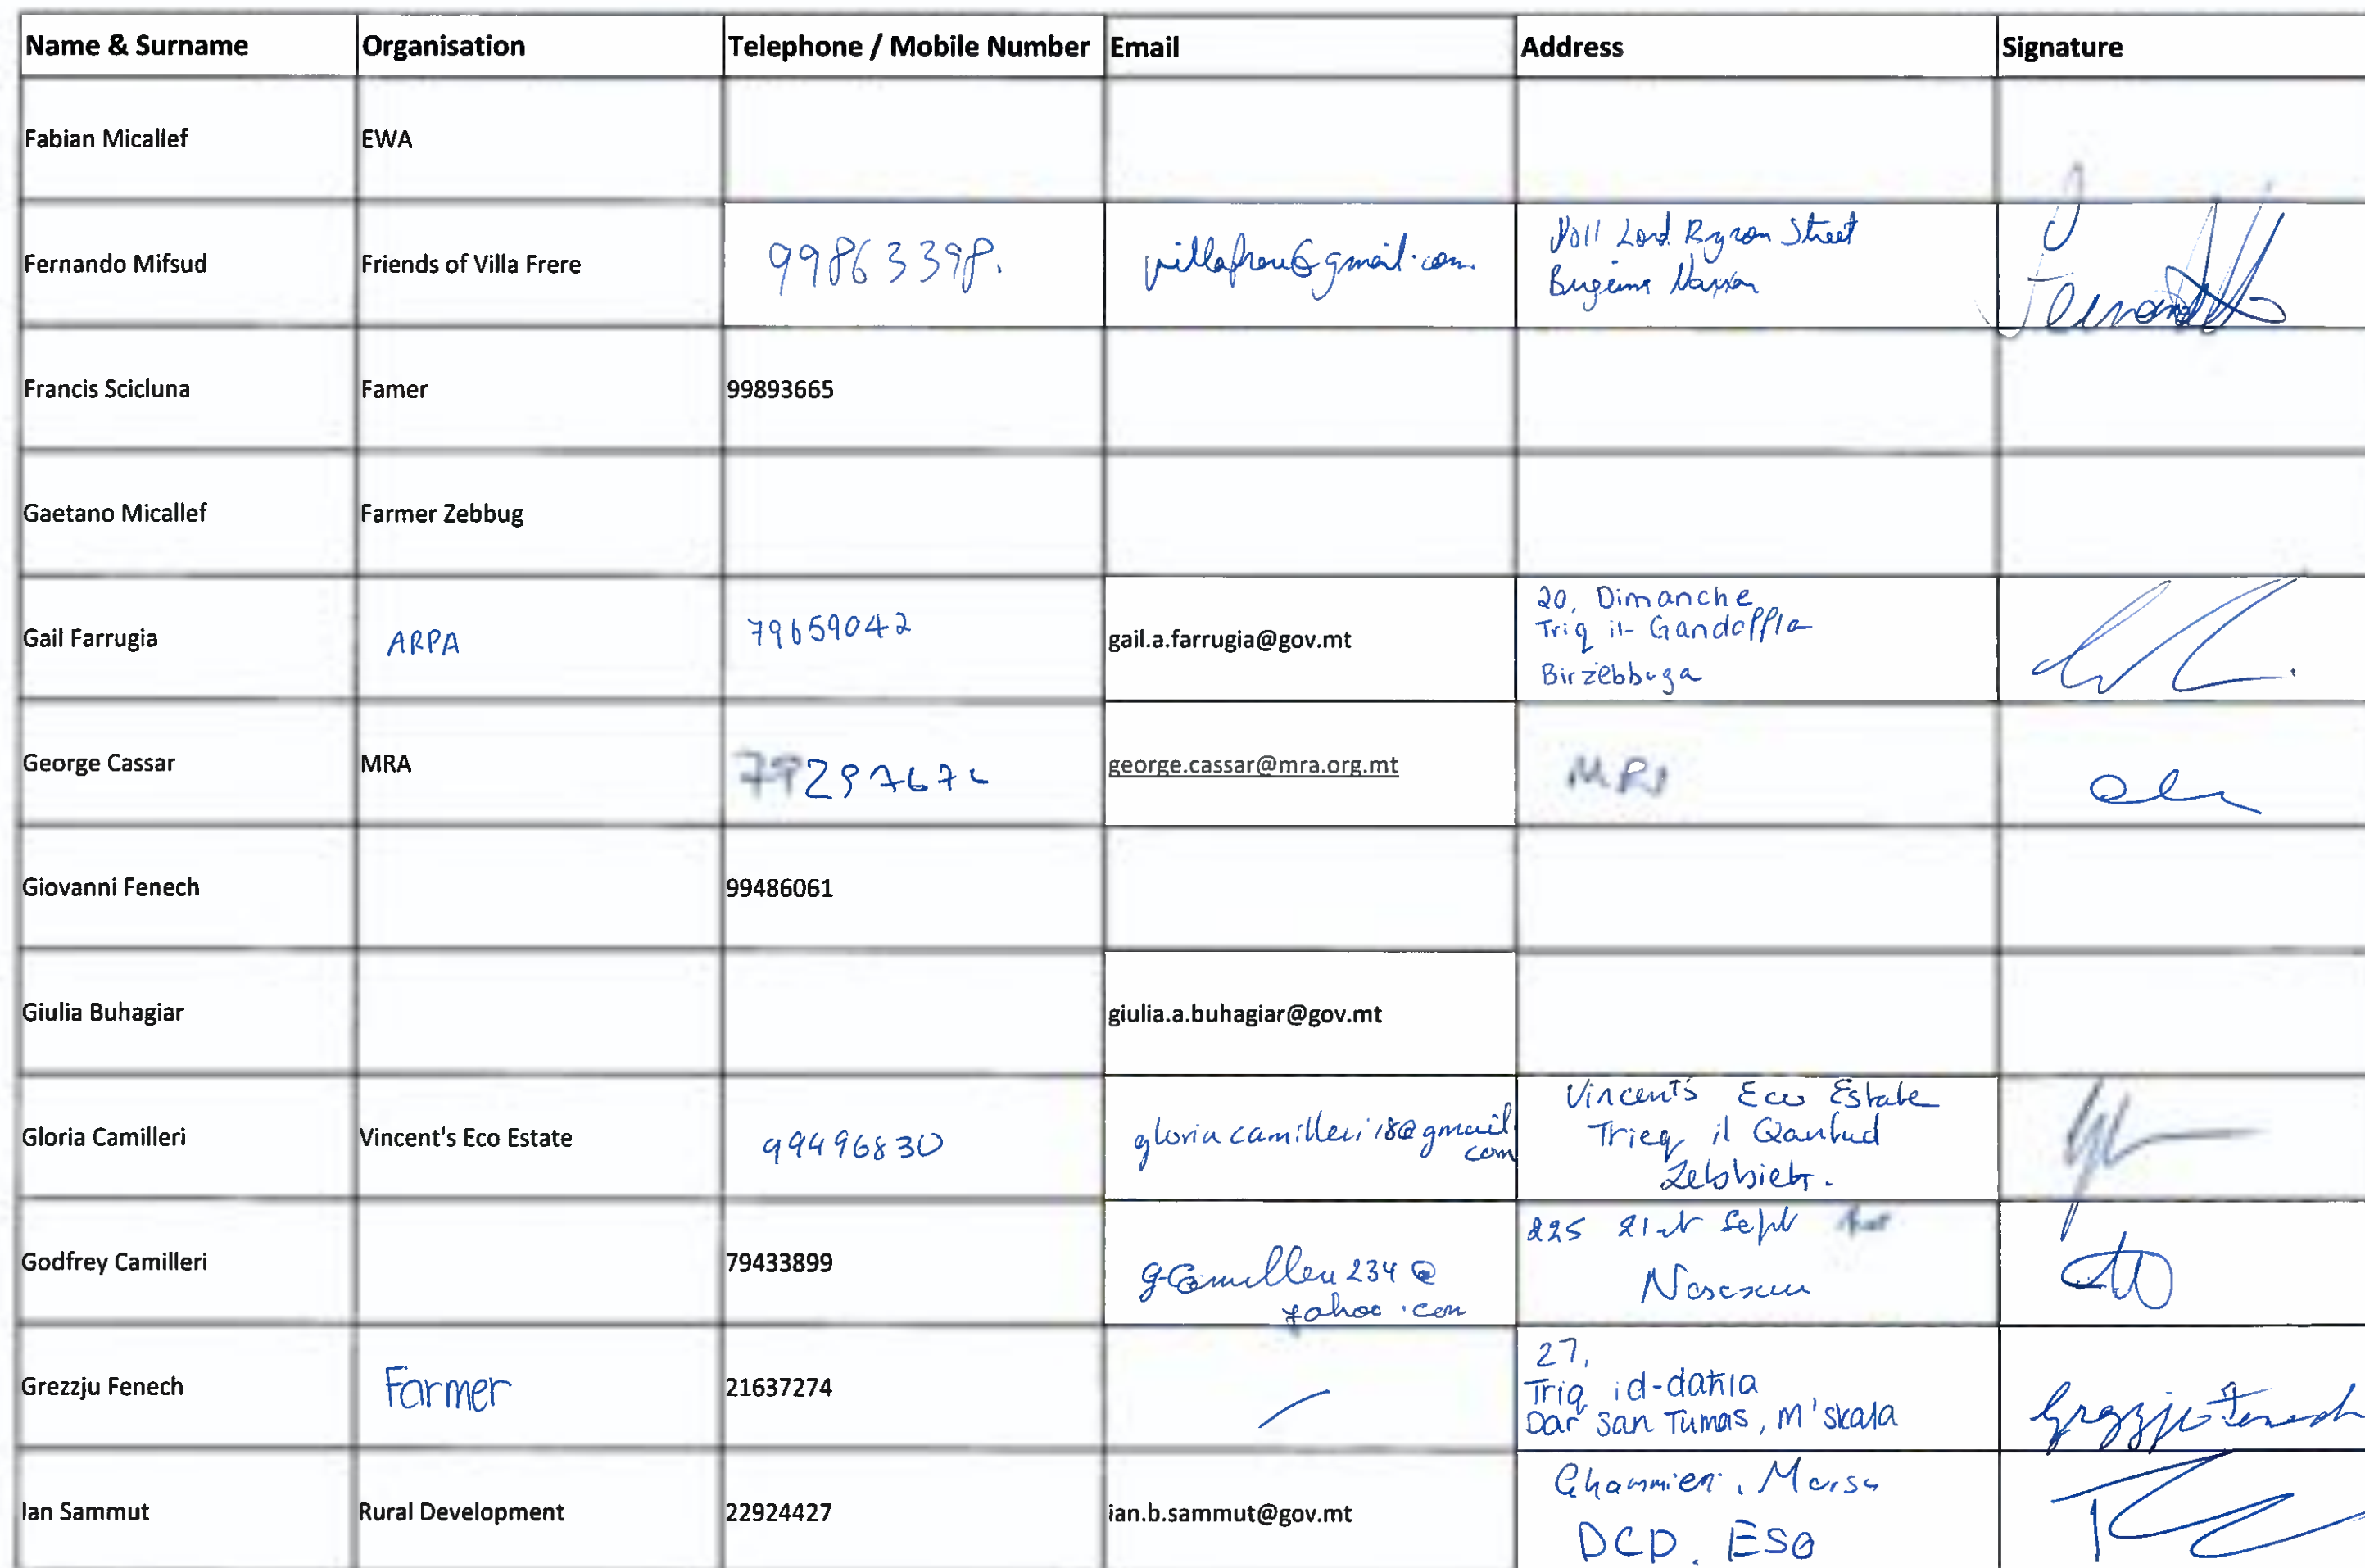 Name & Surname Organisation Telephone / Mobile Number Email Address Signature
Fabian Micallef EWA
Fernando Mifsud Friends of Villa Frere 99863398. @gmail.com Lord Byron Street
Francis Scicluna Famer 99893665
Gaetano Micallef Farmer Zebbug
Gail Farrugia ARPA 79659042 gail.a.farrugia@gov.mt 20, Dimanche
Triq il- Gandoffla
Birzebbuga
George Cassar MRA george.cassar@mra.org.mt
Giovanni Fenech 99486061
Giulia Buhagiar giulia.a.buhagiar@gov.mt
Gloria Camilleri Vincent's Eco Estate 99496830 gloriacamilleri18@gmail Vincent's Eco Estate
com Trieq il Qanfud
Zebbieh.
Godfrey Camilleri 79433899 225 21st Sept
yahoo.com
Grezzju Fenech Farmer 21637274 27,
Triq id-daħla
Dar San Tumas, M'skala Grezzju Fenech
Ian Sammut Rural Development 22924427 ian.b.sammut@gov.mt Ghammieri, Marsa
DCD. ESO